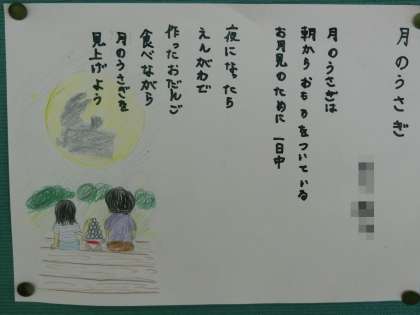 月のうさぎ
月のうさぎは
朝からおもちをついている
お月見のために一日中
夜になったら
えんがわで
作ったおだんご
食べながら
月のうさぎを
見上げよう